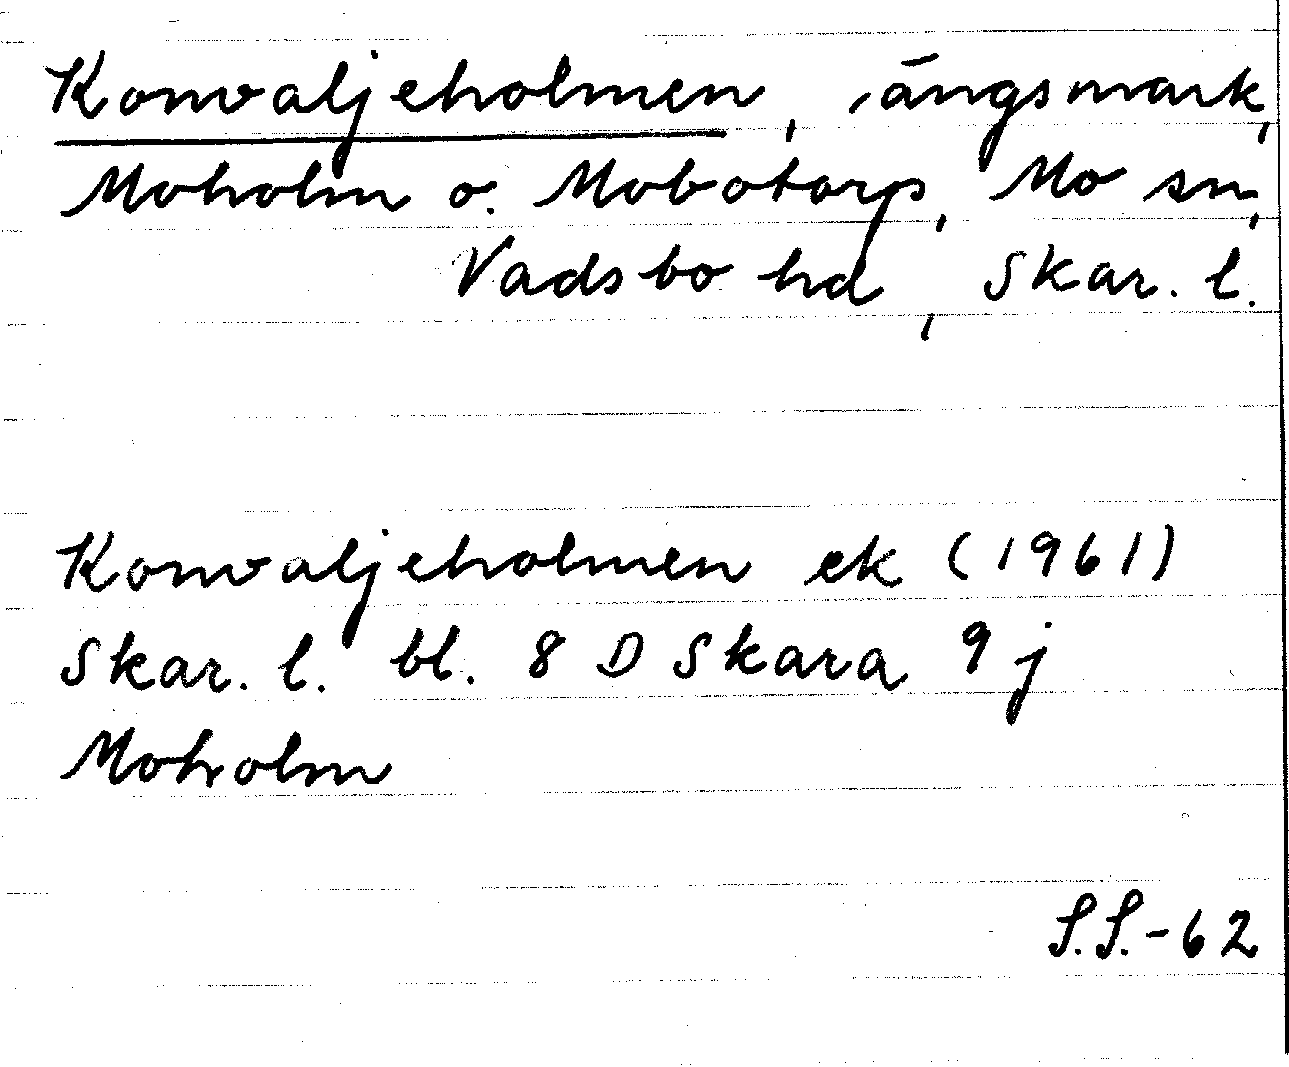 Konvaljeholmen, ängsmark,
Moholm o. Mobotorp, Mo sn,
Vadsbo hd, Skar. l.
Konvaljeholmen ek (1961)
Skar. l. bl. 8 D Skara 9 j
Moholm
S.S.-62